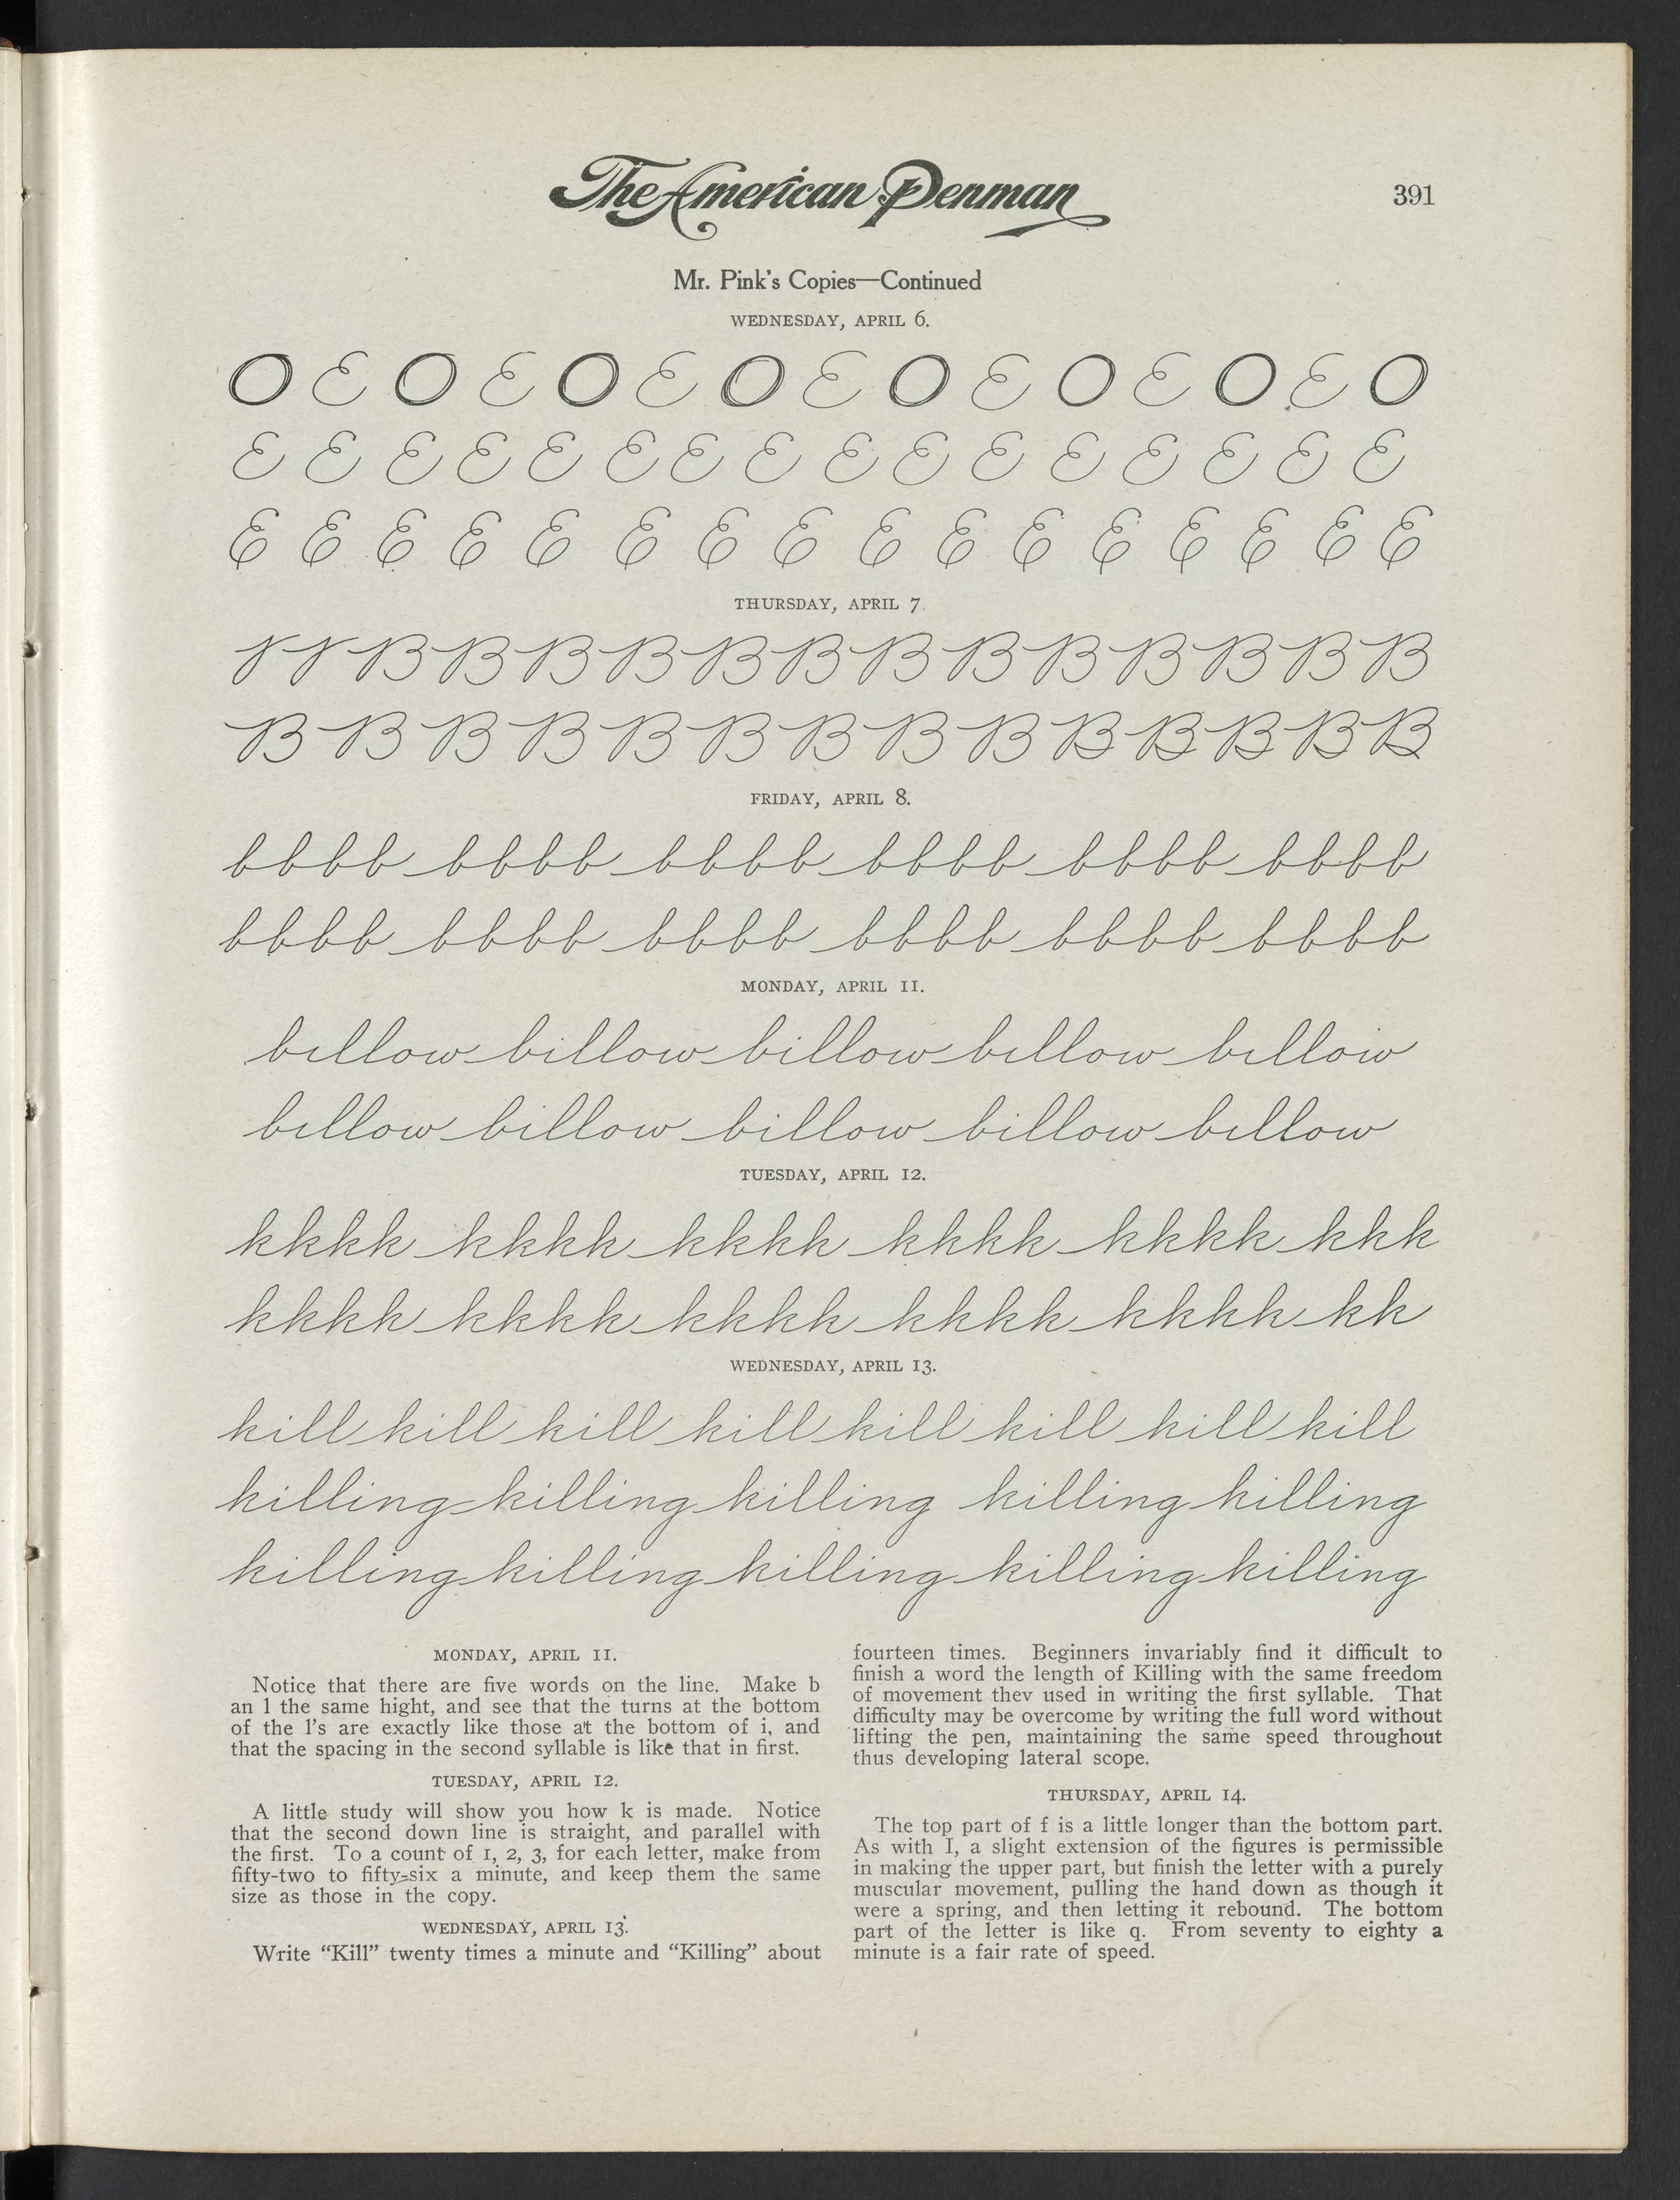 The American Penman
391
Mr. Pink's Copies—Continued
WEDNESDAY, APRIL 6.
O E O E O E O E O E O E O E O
E E E E E E E E E E E E E E E E
E E E E E E E E E E E E E E E E
THURSDAY, APRIL 7.
B B B B B B B B B B B B B
B B B B B B B B B B B B B B
FRIDAY, APRIL 8.
bbbb bbbb bbbb bbbb bbbb bbbb
bbbb bbbb bbbb bbbb bbbb bbbb
MONDAY, APRIL 11.
billow billow billow billow billow
billow billow billow billow billow
TUESDAY, APRIL 12.
kkkk kkkk kkkk kkkk kkkk kkk
kkkk kkkk kkkk kkkk kkkk kk
WEDNESDAY, APRIL 13.
kill kill kill kill kill kill kill kill
killing killing killing killing killing
killing killing killing killing killing
MONDAY, APRIL 11.
Notice that there are five words on the line. Make b
an l the same hight, and see that the turns at the bottom
of the l's are exactly like those at the bottom of i, and
that the spacing in the second syllable is like that in first.
TUESDAY, APRIL 12.
A little study will show you how k is made. Notice
that the second down line is straight, and parallel with
the first. To a count of 1, 2, 3, for each letter, make from
fifty-two to fifty-six a minute, and keep them the same
size as those in the copy.
WEDNESDAY, APRIL 13.
Write "Kill" twenty times a minute and "Killing" about
fourteen times. Beginners invariably find it difficult to
finish a word the length of Killing with the same freedom
of movement thev used in writing the first syllable. That
difficulty may be overcome by writing the full word without
lifting the pen, maintaining the same speed throughout
thus developing lateral scope.
THURSDAY, APRIL 14.
The top part of f is a little longer than the bottom part.
As with I, a slight extension of the figures is permissible
in making the upper part, but finish the letter with a purely
muscular movement, pulling the hand down as though it
were a spring, and then letting it rebound. The bottom
part of the letter is like q. From seventy to eighty a
minute is a fair rate of speed.